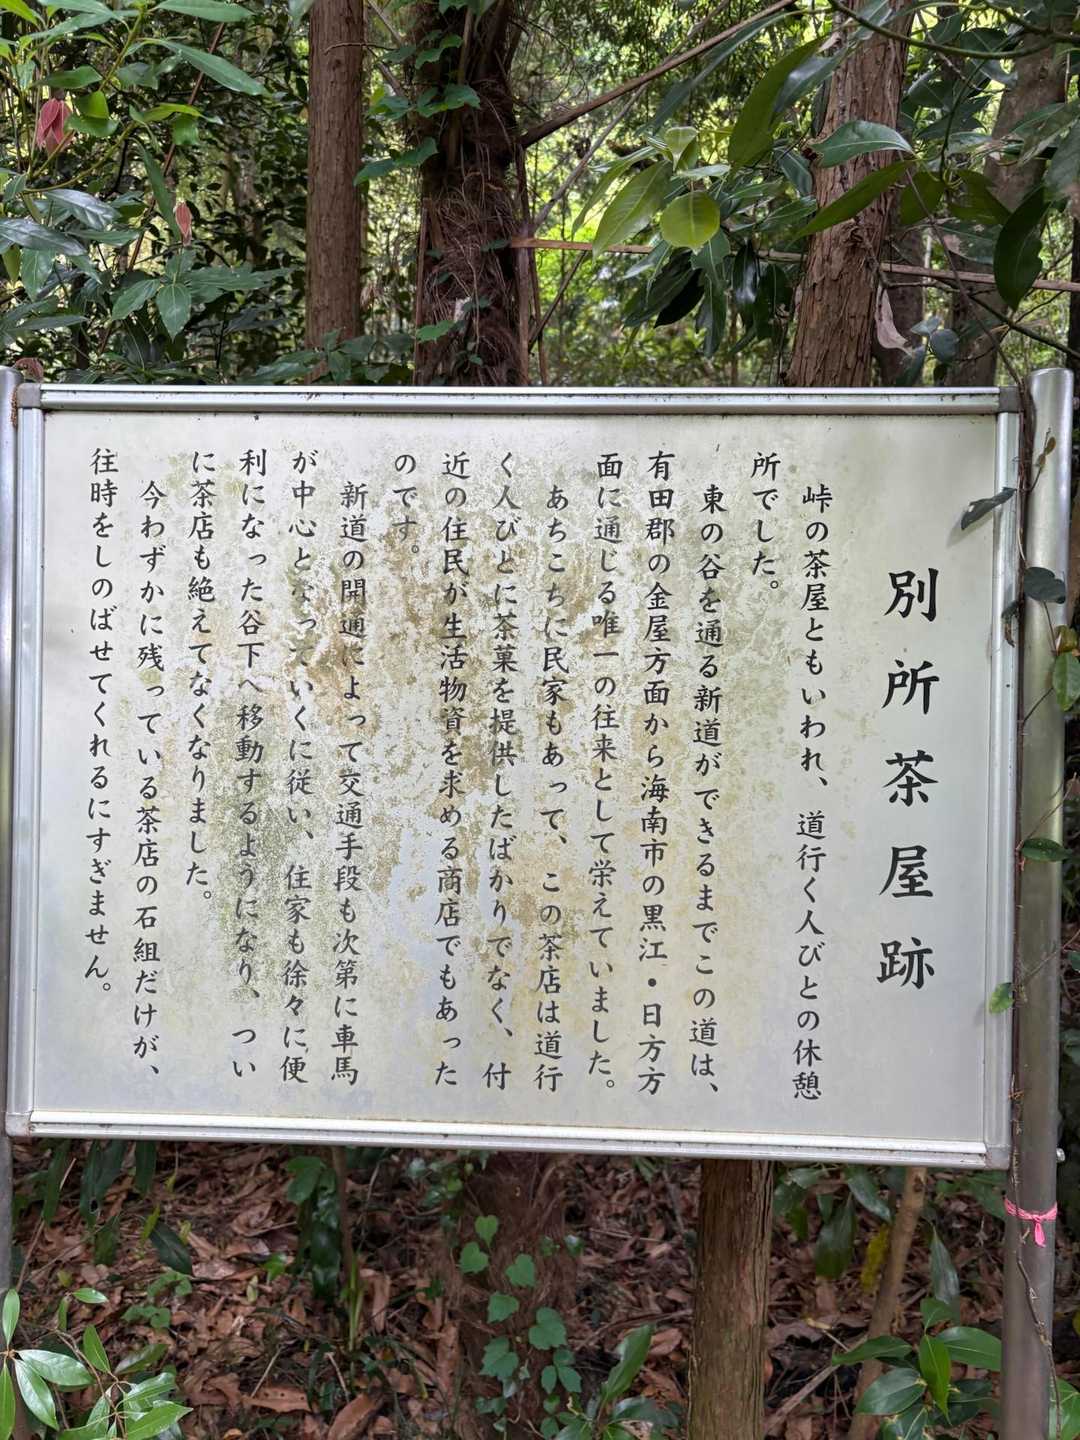 別所茶屋跡
峠の茶屋ともいわれ、道行く人びとの休憩
所でした。
東の谷を通る新道ができるまでこの道は、
有田郡の金屋方面から海南市の黒江・日方方
面に通じる唯一の往来として栄えていました。
あちこちに民家もあって、この茶店は道行
く人びとに茶菓を提供したばかりでなく、付
近の住民が生活物資を求める商店でもあった
のです。
新道の開通によって交通手段も次第に車馬
が中心となっていくに従い、住家も徐々に便
利になった谷下へ移動するようになり、つい
に茶店も絶えてなくなりました。
今わずかに残っている茶店の石組だけが、
往時をしのばせてくれるにすぎません。